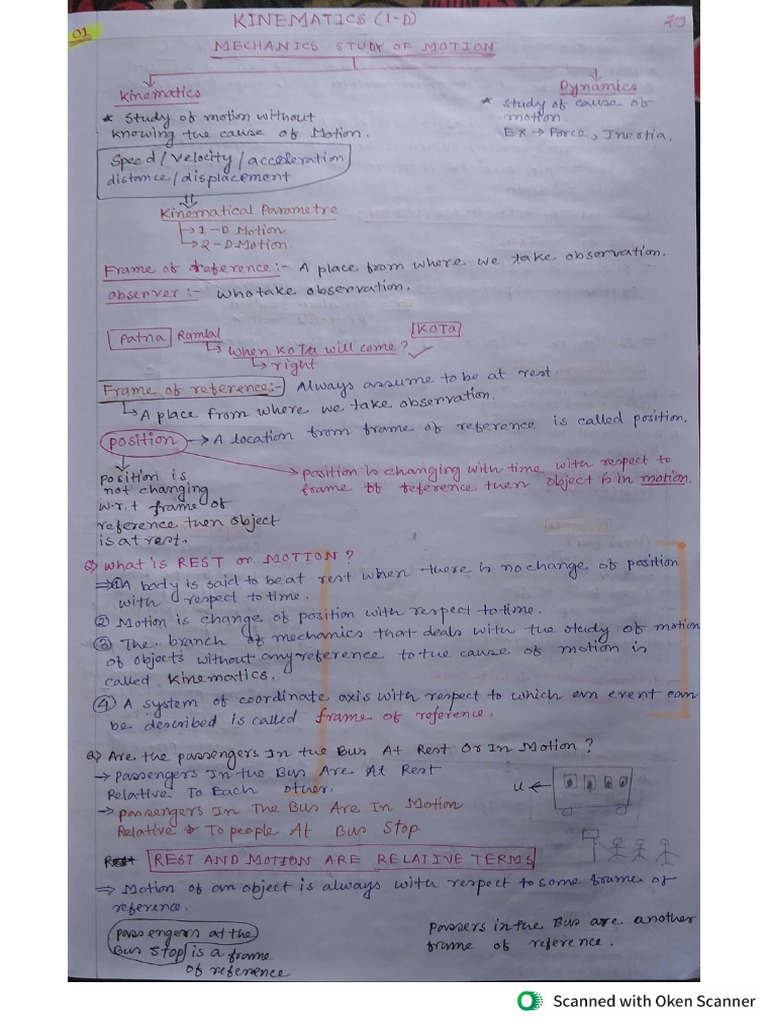 01
KINEMATICS (1-D)
MECHANICS STUDY OF MOTION
Kinematics
* Study of motion without
knowing the cause of Motion.
Speed/velocity/acceleration
distance/displacement
Dynamics
* Study of cause of
motion.
Ex → Force, Inertia.
Kinematical Parametre
→ 1-D Motion
→ 2-D Motion.
Frame of reference:- A place from where we take observation.
observer:- who take observation.
Patna Ramlal KOTA
When KOTA will come?
right
Frame of reference:- Always assume to be at rest.
A place from where we take observation.
position → A location from frame of reference is called position.
position is
not changing
w.r.t frame of
reference then object
is at rest.
position is changing with time with respect to
frame of reference then object is in motion.
Q) What is REST or MOTION?
⇒ ① A body is said to be at rest when there is no change of position
with respect to time.
② Motion is change of position with respect to time.
③ The branch of mechanics that deals with the study of motion
of objects without any reference to the cause of motion is
called Kinematics.
④ A system of coordinate axis with respect to which an event can
be described is called frame of reference.
Q) Are the passengers In the Bus At Rest Or In Motion?
→ Passengers In the Bus Are At Rest
Relative To Each other.
→ Passengers In The Bus Are In Motion
Relative To people At Bus Stop.
u ←
REST AND MOTION ARE RELATIVE TERMS
⇒ Motion of an object is always with respect to some frame of
reference.
passengers at the
Bus Stop is a frame
of reference
Passers in the Bus are another
frame of reference.
Scanned with Oken Scanner